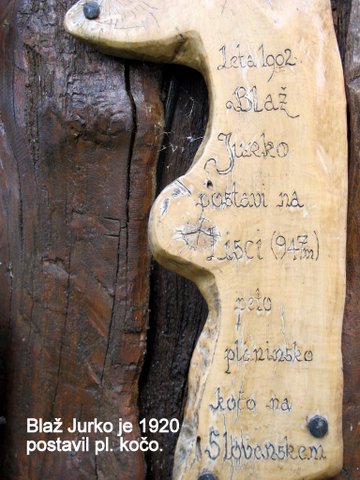 Leta 1902
Blaž
Jurko
postavi na
Lisci (947m)
peto
planinsko
kočo na
Slovenskem
Blaž Jurko je 1920
postavil pl. kočo.